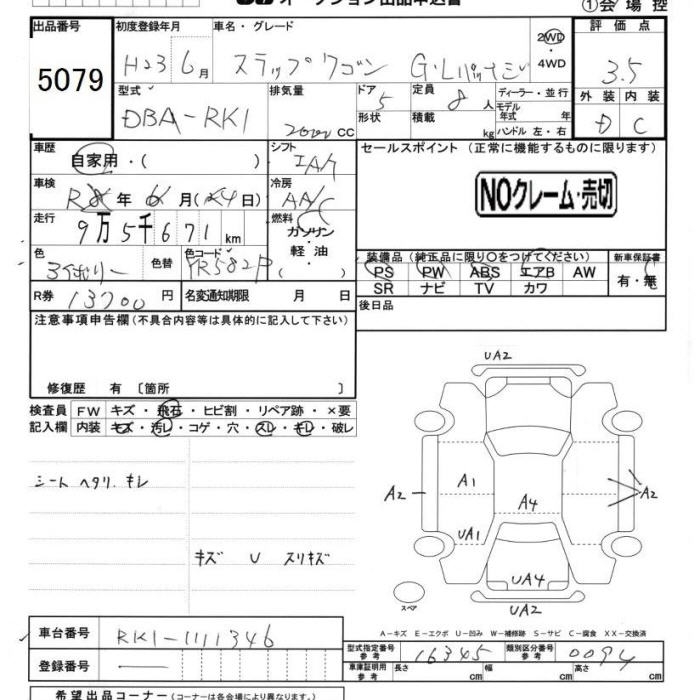 オークション出品申込書
①会場控
出品番号
5079
初度登録年月
H23 6月
車名・グレード
ステップワゴン G・Lパッケージ
2WD
・
4WD
評価点
3.5
外装 内装
D C
型式
DBA-RK1
排気量
2000 CC
ドア
5
形状
定員
8人
積載
kg
ディーラー・並行
モデル
年式 年
ハンドル 左・右
車歴
自家用・( )
シフト
IAT
セールスポイント(正常に機能するものに限ります)
NOクレーム・売切
車検
R8年 6月(24日)
冷房
AAC
走行
9万5千671km
燃料
ガソリン
・
軽油
・
( )
色
色替
色コード
YR582P
装備品(純正品に限り○をつけてください)
新車保証書
PS PW ABS エアB AW
有・無
SR ナビ TV カワ
R券 13700円
名変通知期限 月 日
後日品
注意事項申告欄(不具合内容等は具体的に記入して下さい)
修復歴 有〔箇所 〕
検査員 FW キズ・飛石・ヒビ割・リペア跡・×要
記入欄 内装 キズ・汚レ・コゲ・穴・スレ・キレ・破レ
シート ヘタリ.キレ
キズ U スリキズ
UA2
A2 A1 A4 A2
UA1
UA4
UA2
スペア
A-キズ E-エクボ U-凹み W-補修跡 S-サビ C-腐食 XX-交換済
車台番号 RK1-1111346
登録番号
型式指定番号
参考
16345
類別区分番号
参考
0094
車庫証明用
参考
長さ 幅 高さ
希望出品コーナー(コーナーは各会場により異なります)